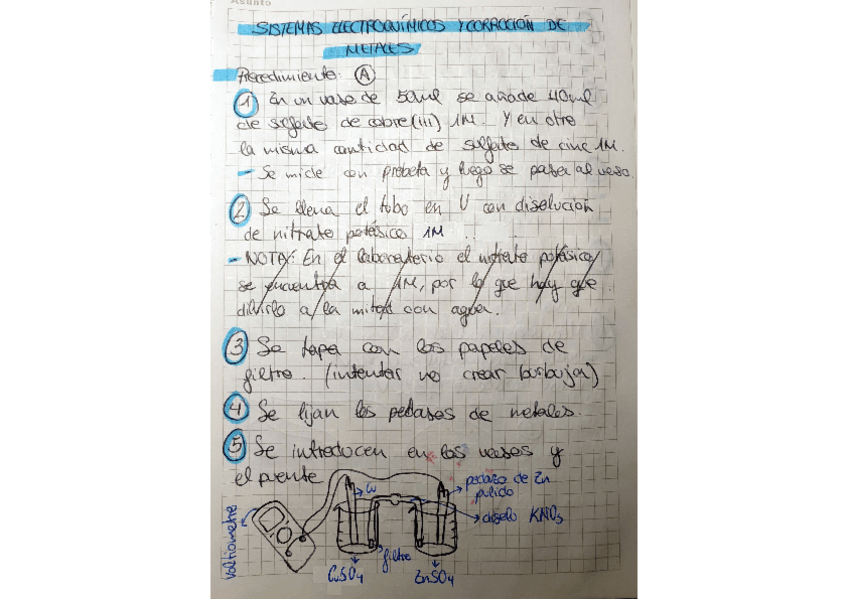 Asunto
SISTEMAS ELECTROQUÍMICOS Y CORROSIÓN DE
METALES
Procedimiento: A
1 En un vaso de 50ml se añade 40ml
de sulfato de cobre(III) 1M. Y en otro
la misma cantidad de sulfato de cinc 1M.
- Se mide con probeta y luego se pasa al vaso.
2 Se llena el tubo en U con disolución
de nitrato potásico 1M
- NOTA: En el laboratorio el nitrato potásico
se encuentra a 1M, por lo que hay que
diluirlo a la mitad con agua.
3 Se tapa con los papeles de
filtro. (intentar no crear burbujas)
4 Se lijan los pedazos de metales.
5 Se introducen en los vasos y
el puente
pedazo de Zn
pulido
Cu
disolo KNO3
voltiometro
filtro
CuSO4
ZnSO4